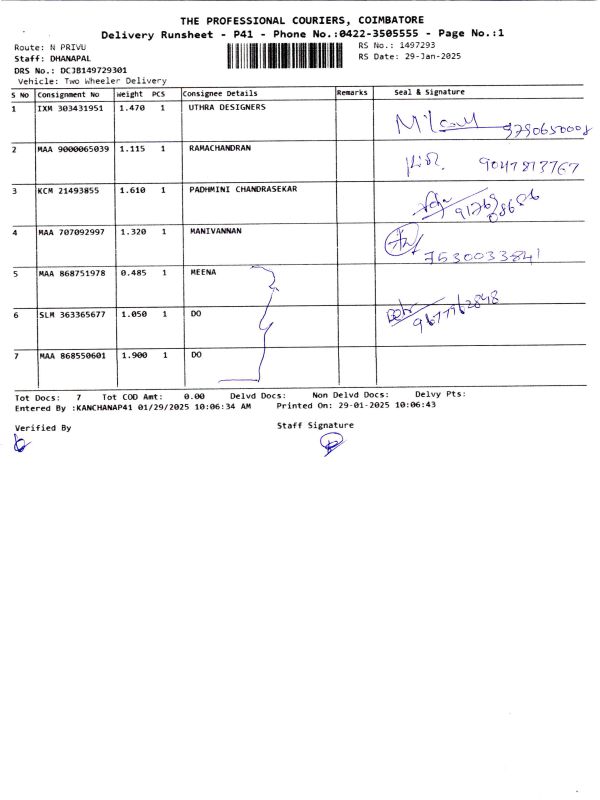 THE PROFESSIONAL COURIERS, COIMBATORE
Delivery Runsheet - P41 - Phone No.:0422-3505555 - Page No.:1
Route: N PRIVU RS No.: 1497293
Staff: DHANAPAL RS Date: 29-Jan-2025
DRS No.: DCJB149729301
Vehicle: Two Wheeler Delivery
S No Consignment No Weight PCS Consignee Details Remarks Seal & Signature
1 IXM 303431951 1.470 1 UTHRA DESIGNERS
9790650008
2 MAA 9000065039 1.115 1 RAMACHANDRAN
9047873767
3 KCM 21493855 1.610 1 PADHMINI CHANDRASEKAR
4 MAA 707092997 1.320 1 MANIVANNAN
7530033841
5 MAA 868751978 0.485 1 MEENA
6 SLM 363365677 1.050 1 DO
9677962848
7 MAA 868550601 1.900 1 DO
Tot Docs: 7 Tot COD Amt: 0.00 Delvd Docs: Non Delvd Docs: Delvy Pts:
Entered By :KANCHANAP41 01/29/2025 10:06:34 AM Printed On: 29-01-2025 10:06:43
Verified By Staff Signature